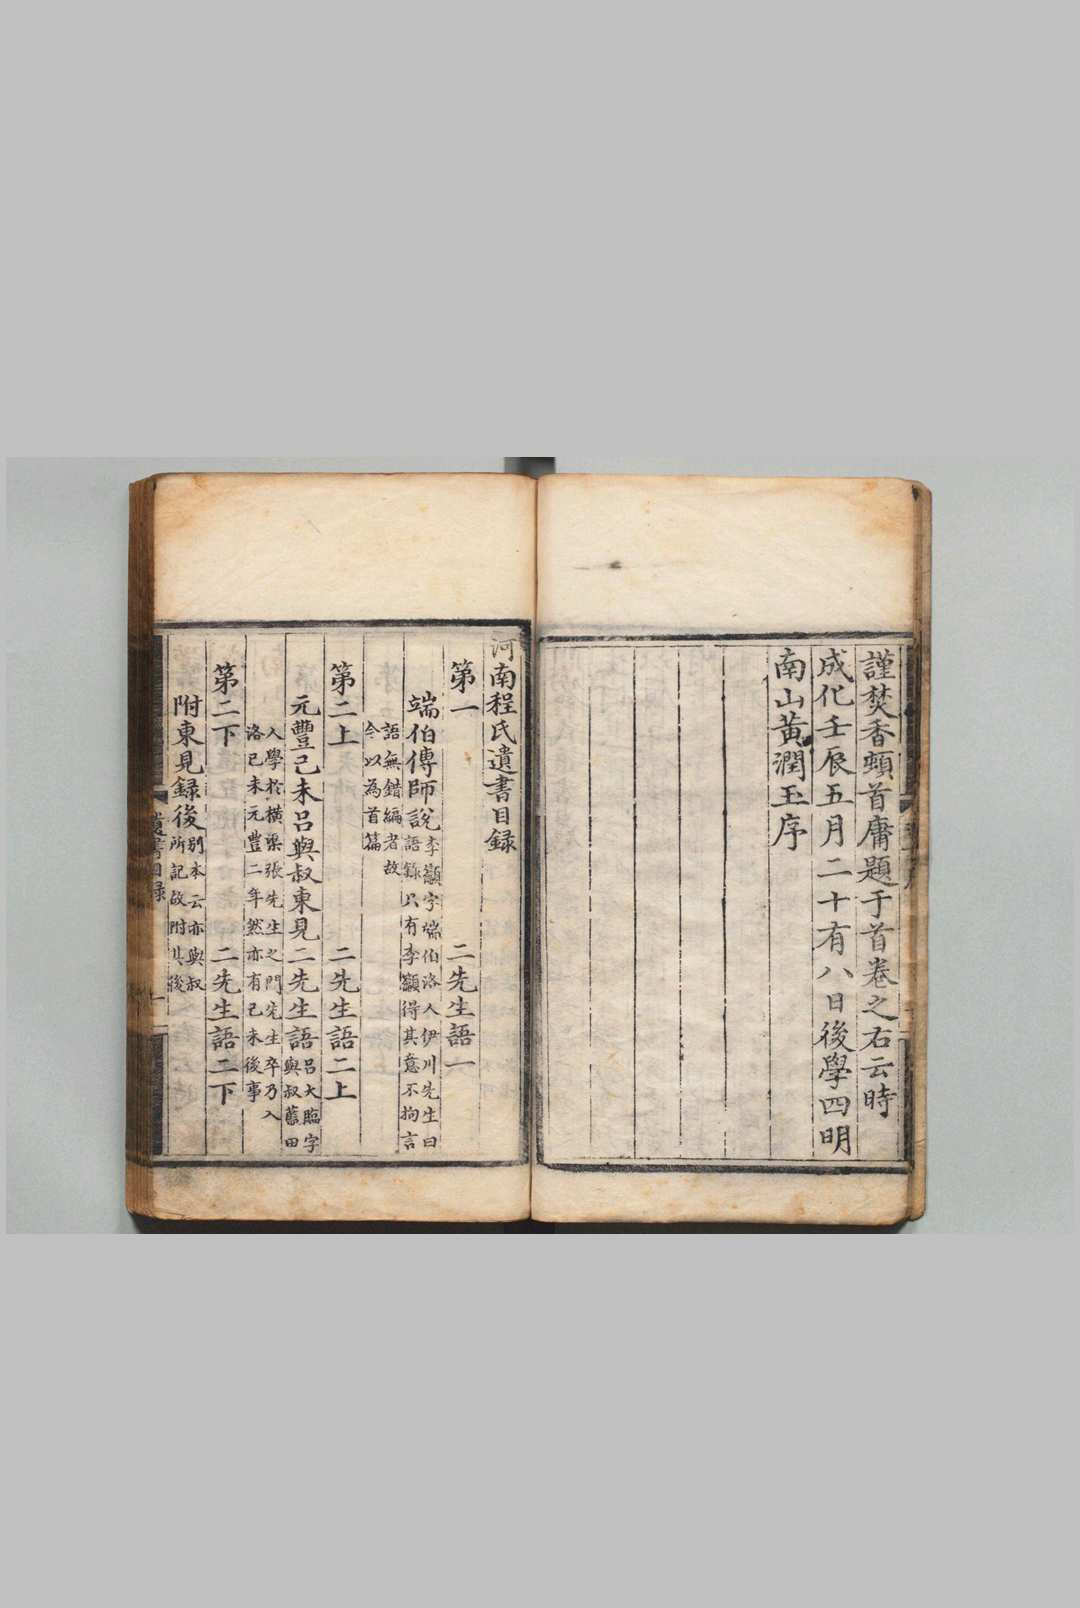 謹焚香頓首庸題于首卷之右云時
成化壬辰五月二十有八日後學四明
南山黃潤玉序
河南程氏遺書目録
第一 二先生語一
端伯傳師說 李籲字端伯洛人伊川先生曰
語録只有李籲得其意不拘言
語無錯編者故
今以為首篇
第二上 二先生語二上
元豐己未呂與叔東見二先生語 呂大臨字
與叔藍田
人學於橫渠張先生之門先生卒乃入
洛己未元豐二年然亦有己未後事
第二下 二先生語二下
附東見録後 別本云亦與叔
所記故附其後
遺書目録 一